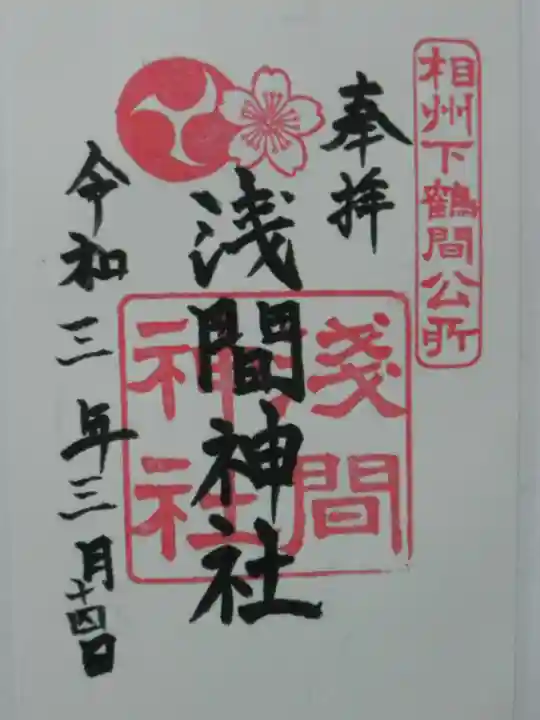 相州下鶴間公所
奉拝
浅間神社
淺間
神社
令和三年三月十四日